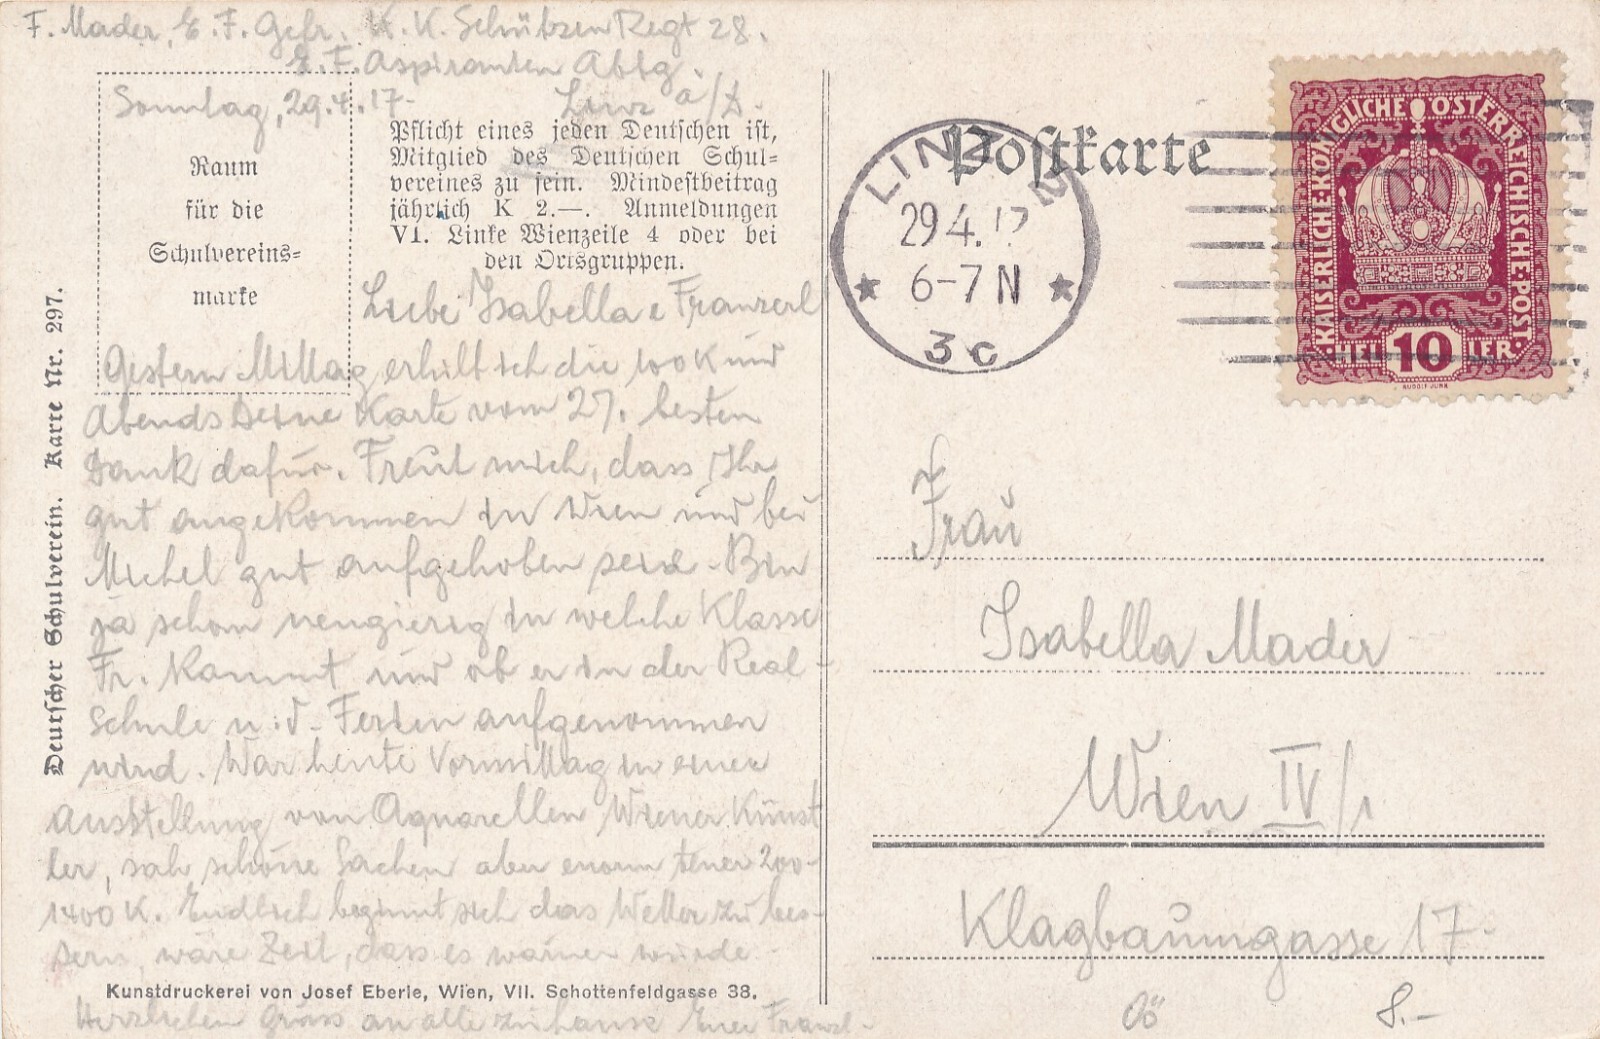 F. Mader, E. F. Gefr. K. K. Schützen Regt 28.
E. F. Aspiranten Abtg.
Sonntag, 29.4.17. Linz a/D.
Raum
für die
Schulvereins=
marke
Pflicht eines jeden Deutschen ist,
Mitglied des Deutschen Schul=
vereines zu sein. Mindestbeitrag
jährlich K 2.—. Anmeldungen
VI. Linke Wienzeile 4 oder bei
den Ortsgruppen.
Deutscher Schulverein. Karte Nr. 297.
Liebe Isabella e Franzerl
Gestern Mittag erhielt ich die 100 K und
Abends Deine Karte vom 27. besten
Dank dafür. Freut mich, dass Ihr
gut angekommen in Wien und bei
Michel gut aufgehoben seid. Bin
ja schon neugierig in welche Klasse
Fr. kommt und ob er in der Real-
Schule u. i. d. Ferien aufgenommen
wird. War heute Vormittag in einer
Ausstellung von Aquarellen Wiener Künst
ler, sah schöne Sachen aber enorm teuer 200-
1400 K. Endlich beginnt sich das Wetter zu bes-
sern, wäre Zeit, dass es wärmer würde.
Kunstdruckerei von Josef Eberle, Wien, VII. Schottenfeldgasse 38.
Herzlichen Gruss an alle zuhause Euer Franzl.
Postkarte
LINZ
29.4.17
6-7 N
3c
KAISERLICHE·KÖNIGLICHE ÖSTERREICHISCHE·POST·
HELLER 10
RUDOLF JUNK
Frau
Isabella Mader
Wien IV/1
Klagbaumgasse 17.
OÖ 8.-